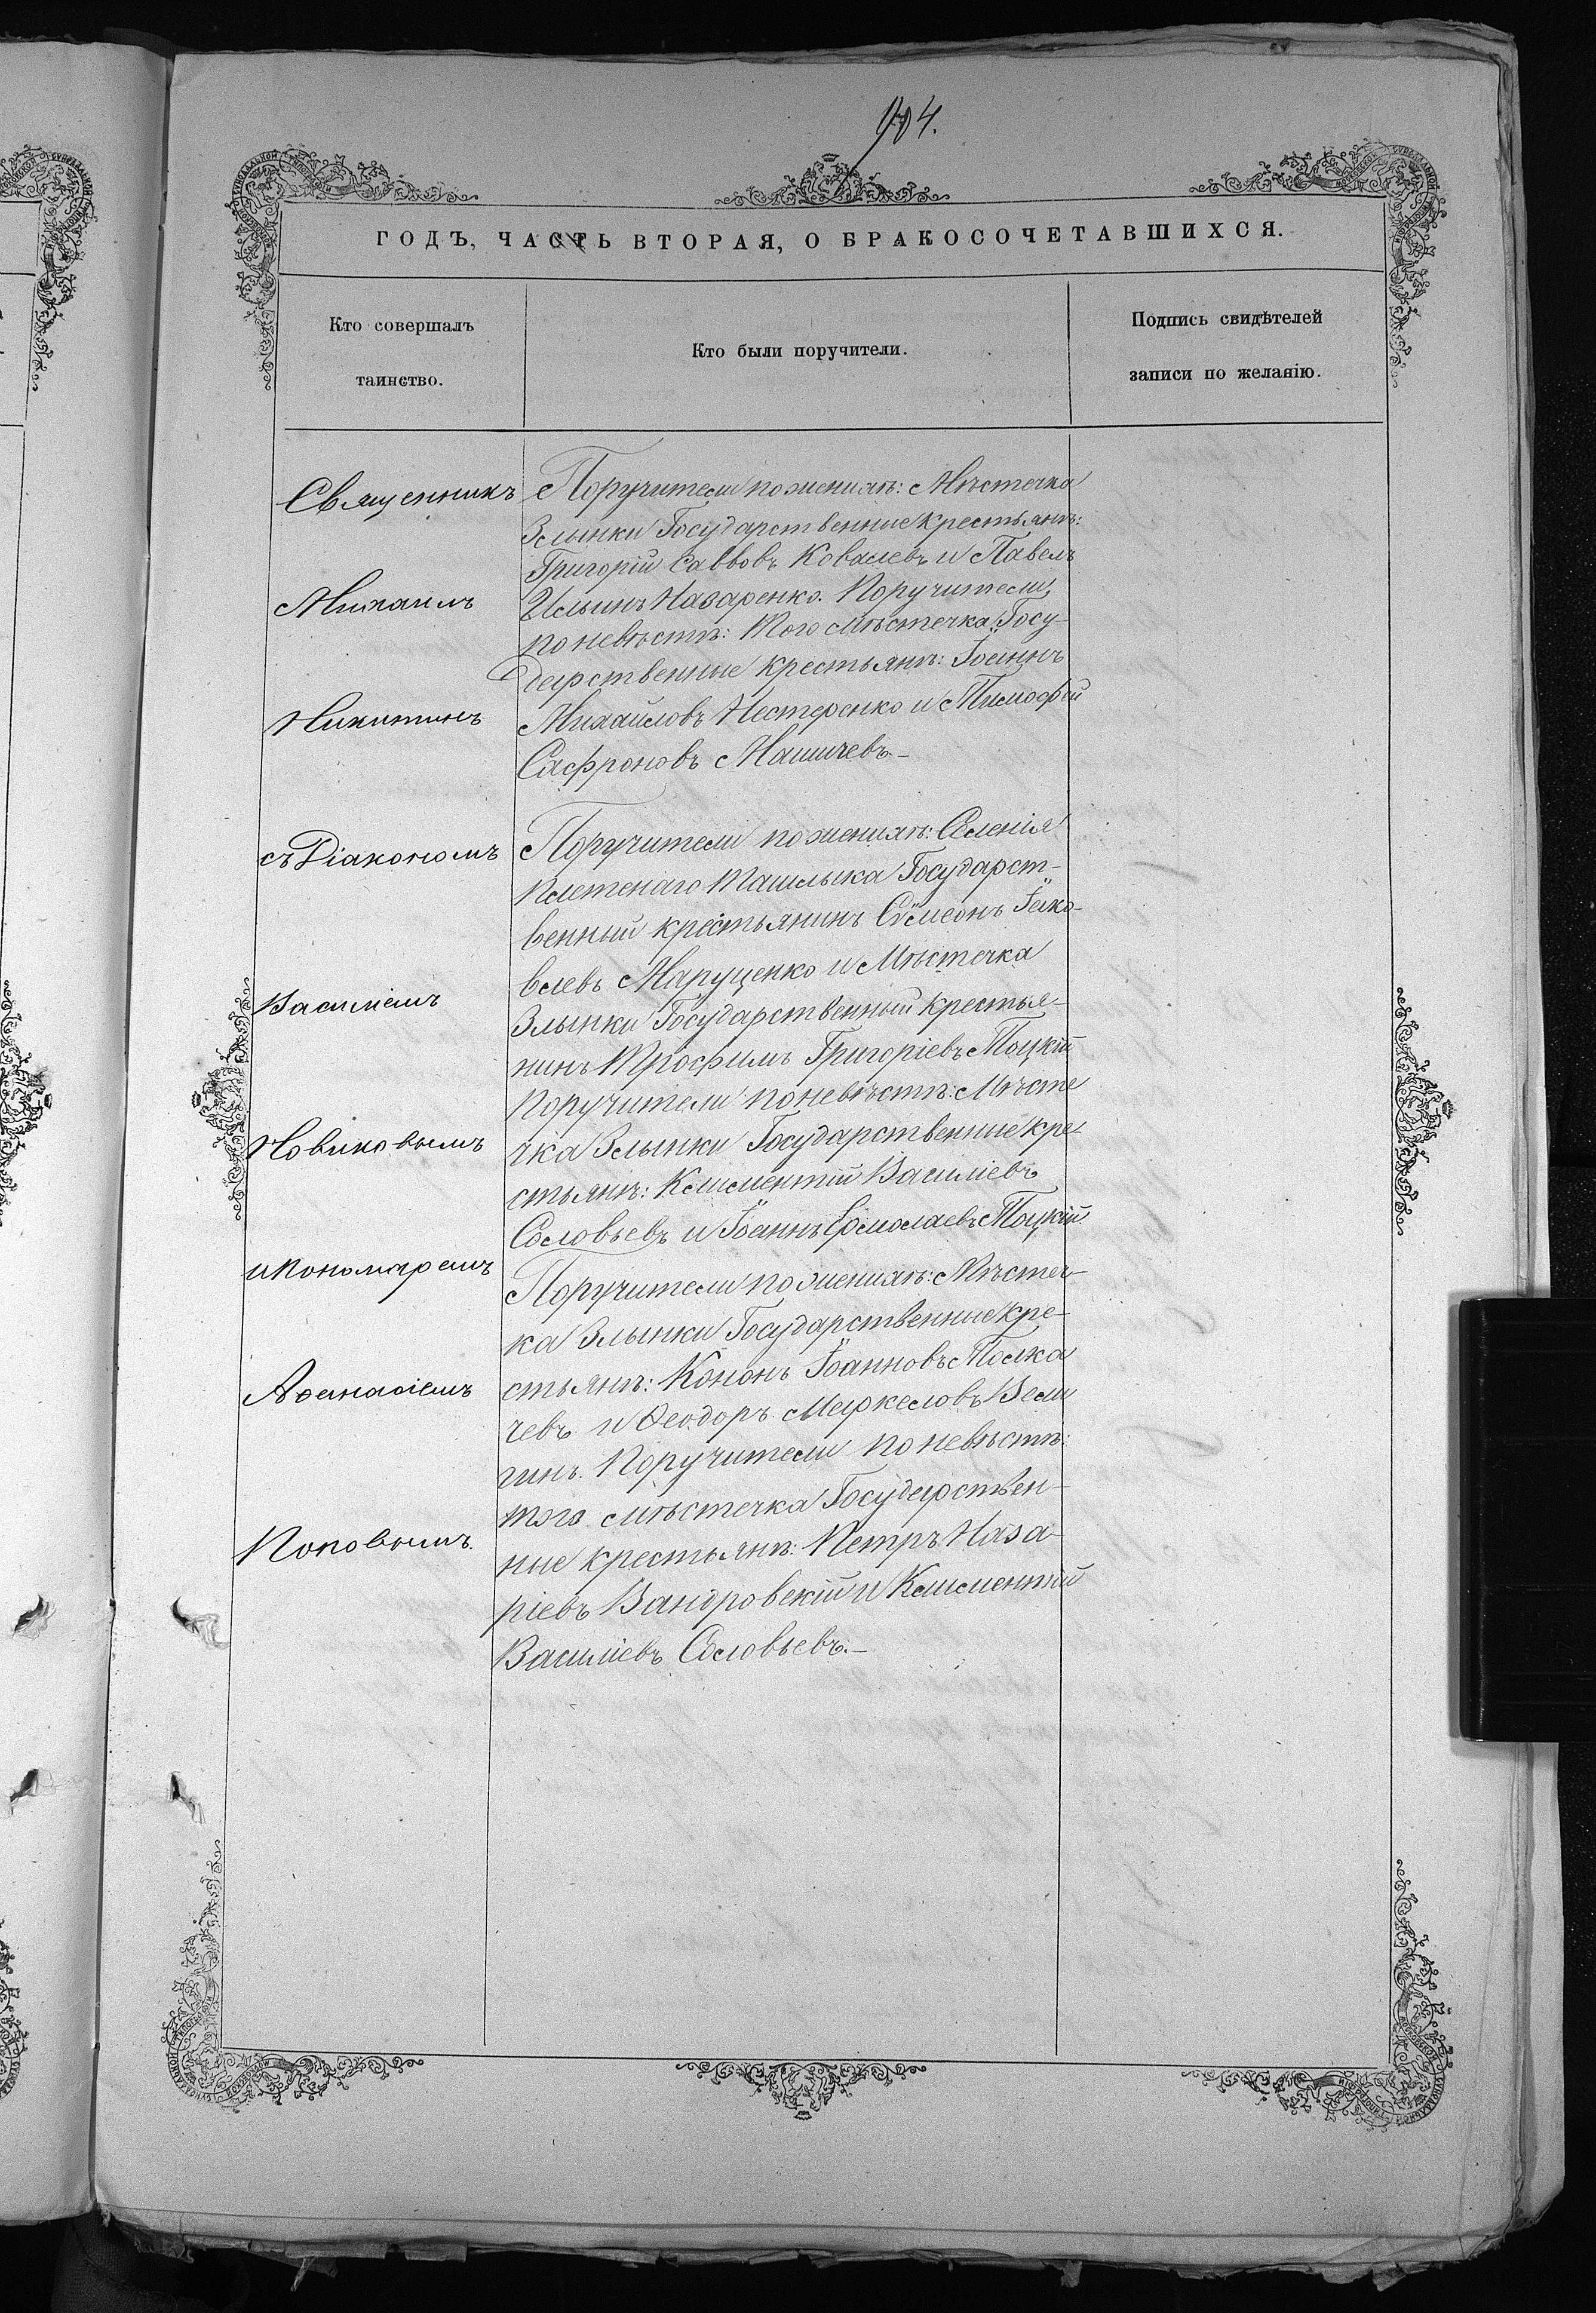 ГОДЪ, ЧАСТЬ ВТОРАЯ, О БРАКОСОЧЕТАВШИХСЯ.
Кто совершалъ
таинство.
Кто были поручители.
Подпись свидѣтелей
записи по желанію.
Священникъ
Михаилъ
Никитинъ
съ Діакономъ
Василіемъ
Новиковымъ
и пономаремъ
Аѳанасіемъ
Поповымъ.
Поручители по женихѣ: Мѣстечка
Злынки Государственные крестьянѣ:
Григорій Саввовъ Ковалевъ и Павелъ
Ильинъ Назаренко. Поручители,
по невѣстѣ: Того мѣстечка Госу-
дарственные крестьянѣ: Іоаннъ
Михайловъ Нестеренко и Тимофей
Сафроновъ
Поручители по женихѣ: Селенія
Плетенаго Ташлыка Государст-
венный крестьянинъ Сѵмеонъ Іако-
влевъ Марущенко и Мѣстечка
Злынки Государственный крестья-
нинъ Трофимъ Григоріевъ Тоцкій
Поручители по невѣстѣ: Мѣсте
чка Злынки Государственные кре-
стьянѣ: Климентій Василіевъ
Соловьевъ и Іоаннъ Ермолаевъ Тоцкій
Поручители по женихѣ: Мѣстеч-
ка Злынки Государственные кре-
стьянѣ: Кононъ Іоанновъ Толка
чевъ и Ѳеодоръ Маркеловъ Вели
гинъ. Поручители по невѣстѣ:
того мѣстечка Государствен-
ные крестьянѣ: Петръ Наза-
ріевъ Вандровскій и Климентій
Василіевъ Соловьевъ.-